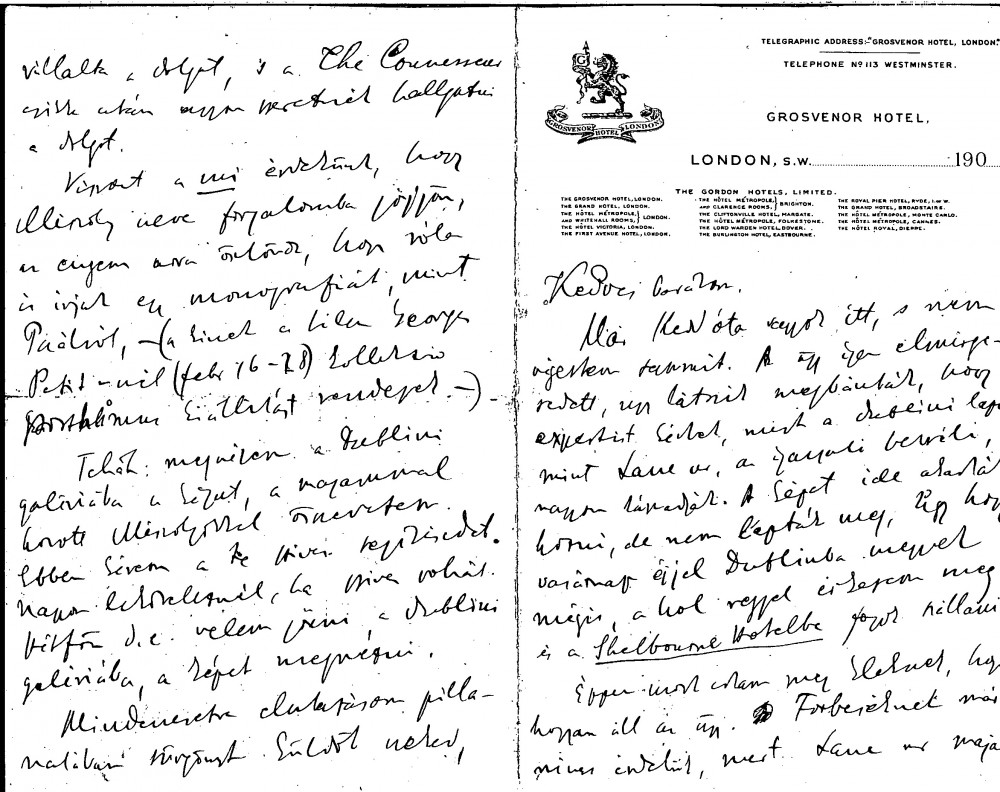 vállalta a dolgot, s a The Connoisseur
czikk után nagyon szeretnék hallgatni
a dolgot.
Viszont a mi érdekünk, hogy
Mészöly neve forgalomba jöjjön,
engem arra ösztönöz, hogy róla
is írjak egy monografiát, mint
Paálról, – (a kinek a
Petit-nél (febr 16-28) kollektiv
kiállitást rendezek. –)
Tehát: megnézem a dublini
galériába a képet, a magammal
hozott Mészölyökkel összevetem.
Ebben kérem a Te szives segitségedet.
Nagyon leköteleznél, ha szives volnál
hétfőn d.e. velem jönni, a dublini
galériába, a képet megnézni.
Mindenesetre elutazásom pilla-
natában sürgönyt küldök neked,
TELEGRAPHIC ADDRESS:-"GROSVENOR HOTEL, LONDON."
TELEPHONE Nº 113 WESTMINSTER.
G
GROSVENOR HOTEL LONDON
GROSVENOR HOTEL,
LONDON, S.W. 190
THE GORDON HOTELS, LIMITED.
THE GROSVENOR HOTEL, LONDON.
THE GRAND HOTEL, LONDON.
THE HÔTEL MÉTROPOLE, AND WHITEHALL ROOMS, } LONDON.
THE HÔTEL VICTORIA, LONDON.
THE FIRST AVENUE HOTEL, LONDON.
THE HÔTEL MÉTROPOLE, AND CLARENCE ROOMS, } BRIGHTON.
THE CLIFTONVILLE HOTEL, MARGATE.
THE HÔTEL MÉTROPOLE, FOLKESTONE.
THE LORD WARDEN HOTEL, DOVER.
THE BURLINGTON HOTEL, EASTBOURNE.
THE ROYAL PIER HOTEL, RYDE, I. OF W.
THE GRAND HOTEL, BROADSTAIRS.
THE HÔTEL MÉTROPOLE, MONTE CARLO.
THE HÔTEL MÉTROPOLE, CANNES.
THE HÔTEL ROYAL, DIEPPE.
Kedves barátom.
Már Kedd óta vagyok itt, s nem
végeztem semmit. Az ügy igen elmérge-
sedett, úgy látszik megbánták, hogy
expertist kértek, mert a dublini lapok
mint Lane úr, a
nagyon támadják. A képet ide akarták
hozni, de nem kapták meg, úgy hogy
vasárnap éjjel Dublinba megyek
mégis, a hol reggel érkezem meg
és a Shelbourne Hotelbe fogok szállani
Éppen most irtam meg Eleknek, hogy
hogyan áll az ügy. Forbeséknek már
nincs érdekük, mert Lane úr maga